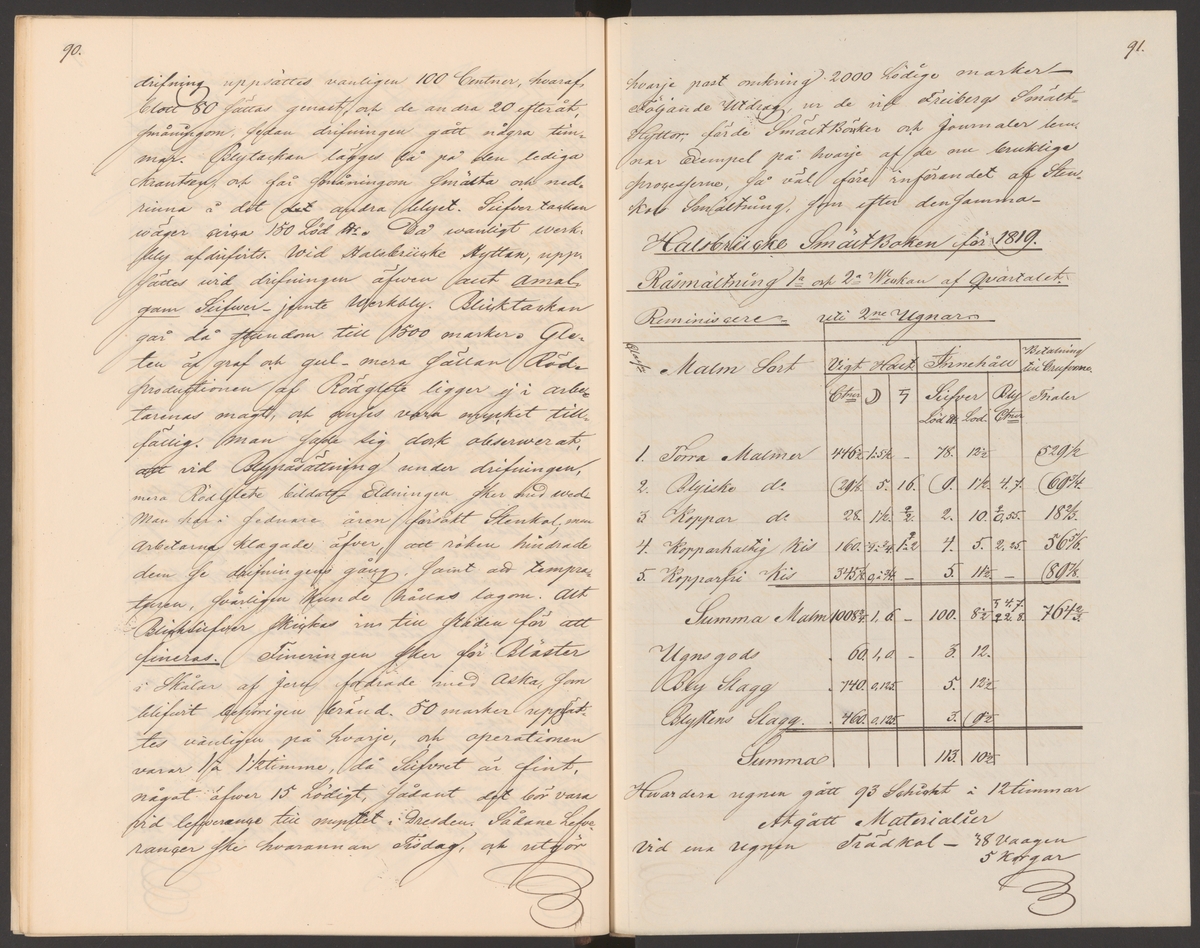 90.
drifning uppsättes vanligen 100 Centner, hvaraf
blott 80 sättas genast, och de andra 20 efteråt
småningom, sedan drifningen gått några tim-
mar. Blytackan lägges då på den lediga
krantsen, och får småningom smälta och ned-
rinna i det det andra blyet. Silfver tackan
wäger circa 150 Löd. Då wanligt werk-
bly afdrifvits. Wid Halsbrücke Hyttan, upp-
sättes vid drifningen äfwen ant Amal-
gam Silfwer jemte Werkbly. Blicktackan
går då stundom till 1500 marker. Gle-
ten är graf och gul - mera sällan Röd-
productionen af Rödglete ligger ej i arbe-
tarenas magt, och anses vara mycket till-
fällig. Man har sig dock observerat,
att vid Blypåsättning under drifningen,
mera Rödglete bildats. Eldningen sker med wed
Man har i sednare åren försökt Stenkol, men
Arbetarne klagade äfver, att röken hindrade
dem se drifningens gång, samt att tempra-
turen, svårligen kunde hållas lagom. Allt
Blicksilfver skickas in till staden för att
fineras. Fineringen sker för Bläster
i Skålar af Jern, fodrade med Aska, som
blifvit behörigen bränd. 50 marker uppsät-
tes vanligen på hvarje, och operationen
varar 1 à 1½ timme, då Silfvret är fint,
något äfwer 15 Lödigt, sådant det bör vara
vid leverance till myntet i Dresden. Sådane Lefve-
rancer ske hvarannan Tisdag, och utgör
91.
hvarje post omkring 2000 lödige marker
Följande Utdrag, ur de vid Freibergs Smält-
Hyttor, förde Smält Böcker och Journaler lem-
nar Exempel på hvarje af de nu brukliga
processerne, så väl före införandet af Sten-
kols Smältning, som efter densamma
Halsbrücke SmältBoken för 1819.
Råsmältning 1a och 2a Weckan af Qvartalet
Reminiscere - uti 2ne Ugnar
Malm Sort Vigt Halt Innehåll Betalning till Grufvorne
Ctner Silfver Bly Thaler
Löd Lod. Ctner
1. Torra Malmer 446½ 1.5½ - 78. 12½ 529½
2. Blyiske do 29⅛ 5. 16. 9. 1½ 4.7. 69¾
3 Koppar do 28. 1½ 2. 10. 0,55. 18⅔
4. Kopparhaltig Kis 160. 4. 5. 2.25. 56⅚
5. Kopparfri Kis 5. 11½ - 89⅞
Summa Malm 1008¾ 1,6. - 100. 8½ 764⅔
Ugnsgods 60. 1,0 - 3. 12.
Bly Slagg 740. 0,125 5. 12½
Blystens Slagg. 460. 0,125. 3. 9½
Summa 113. 10½
Hvardera ugnen gått 93 Schicht i 12 timmar
Åtgått Materialier
Vid ena ugnen Trädkol - 38 Vaagen
5 Korgar